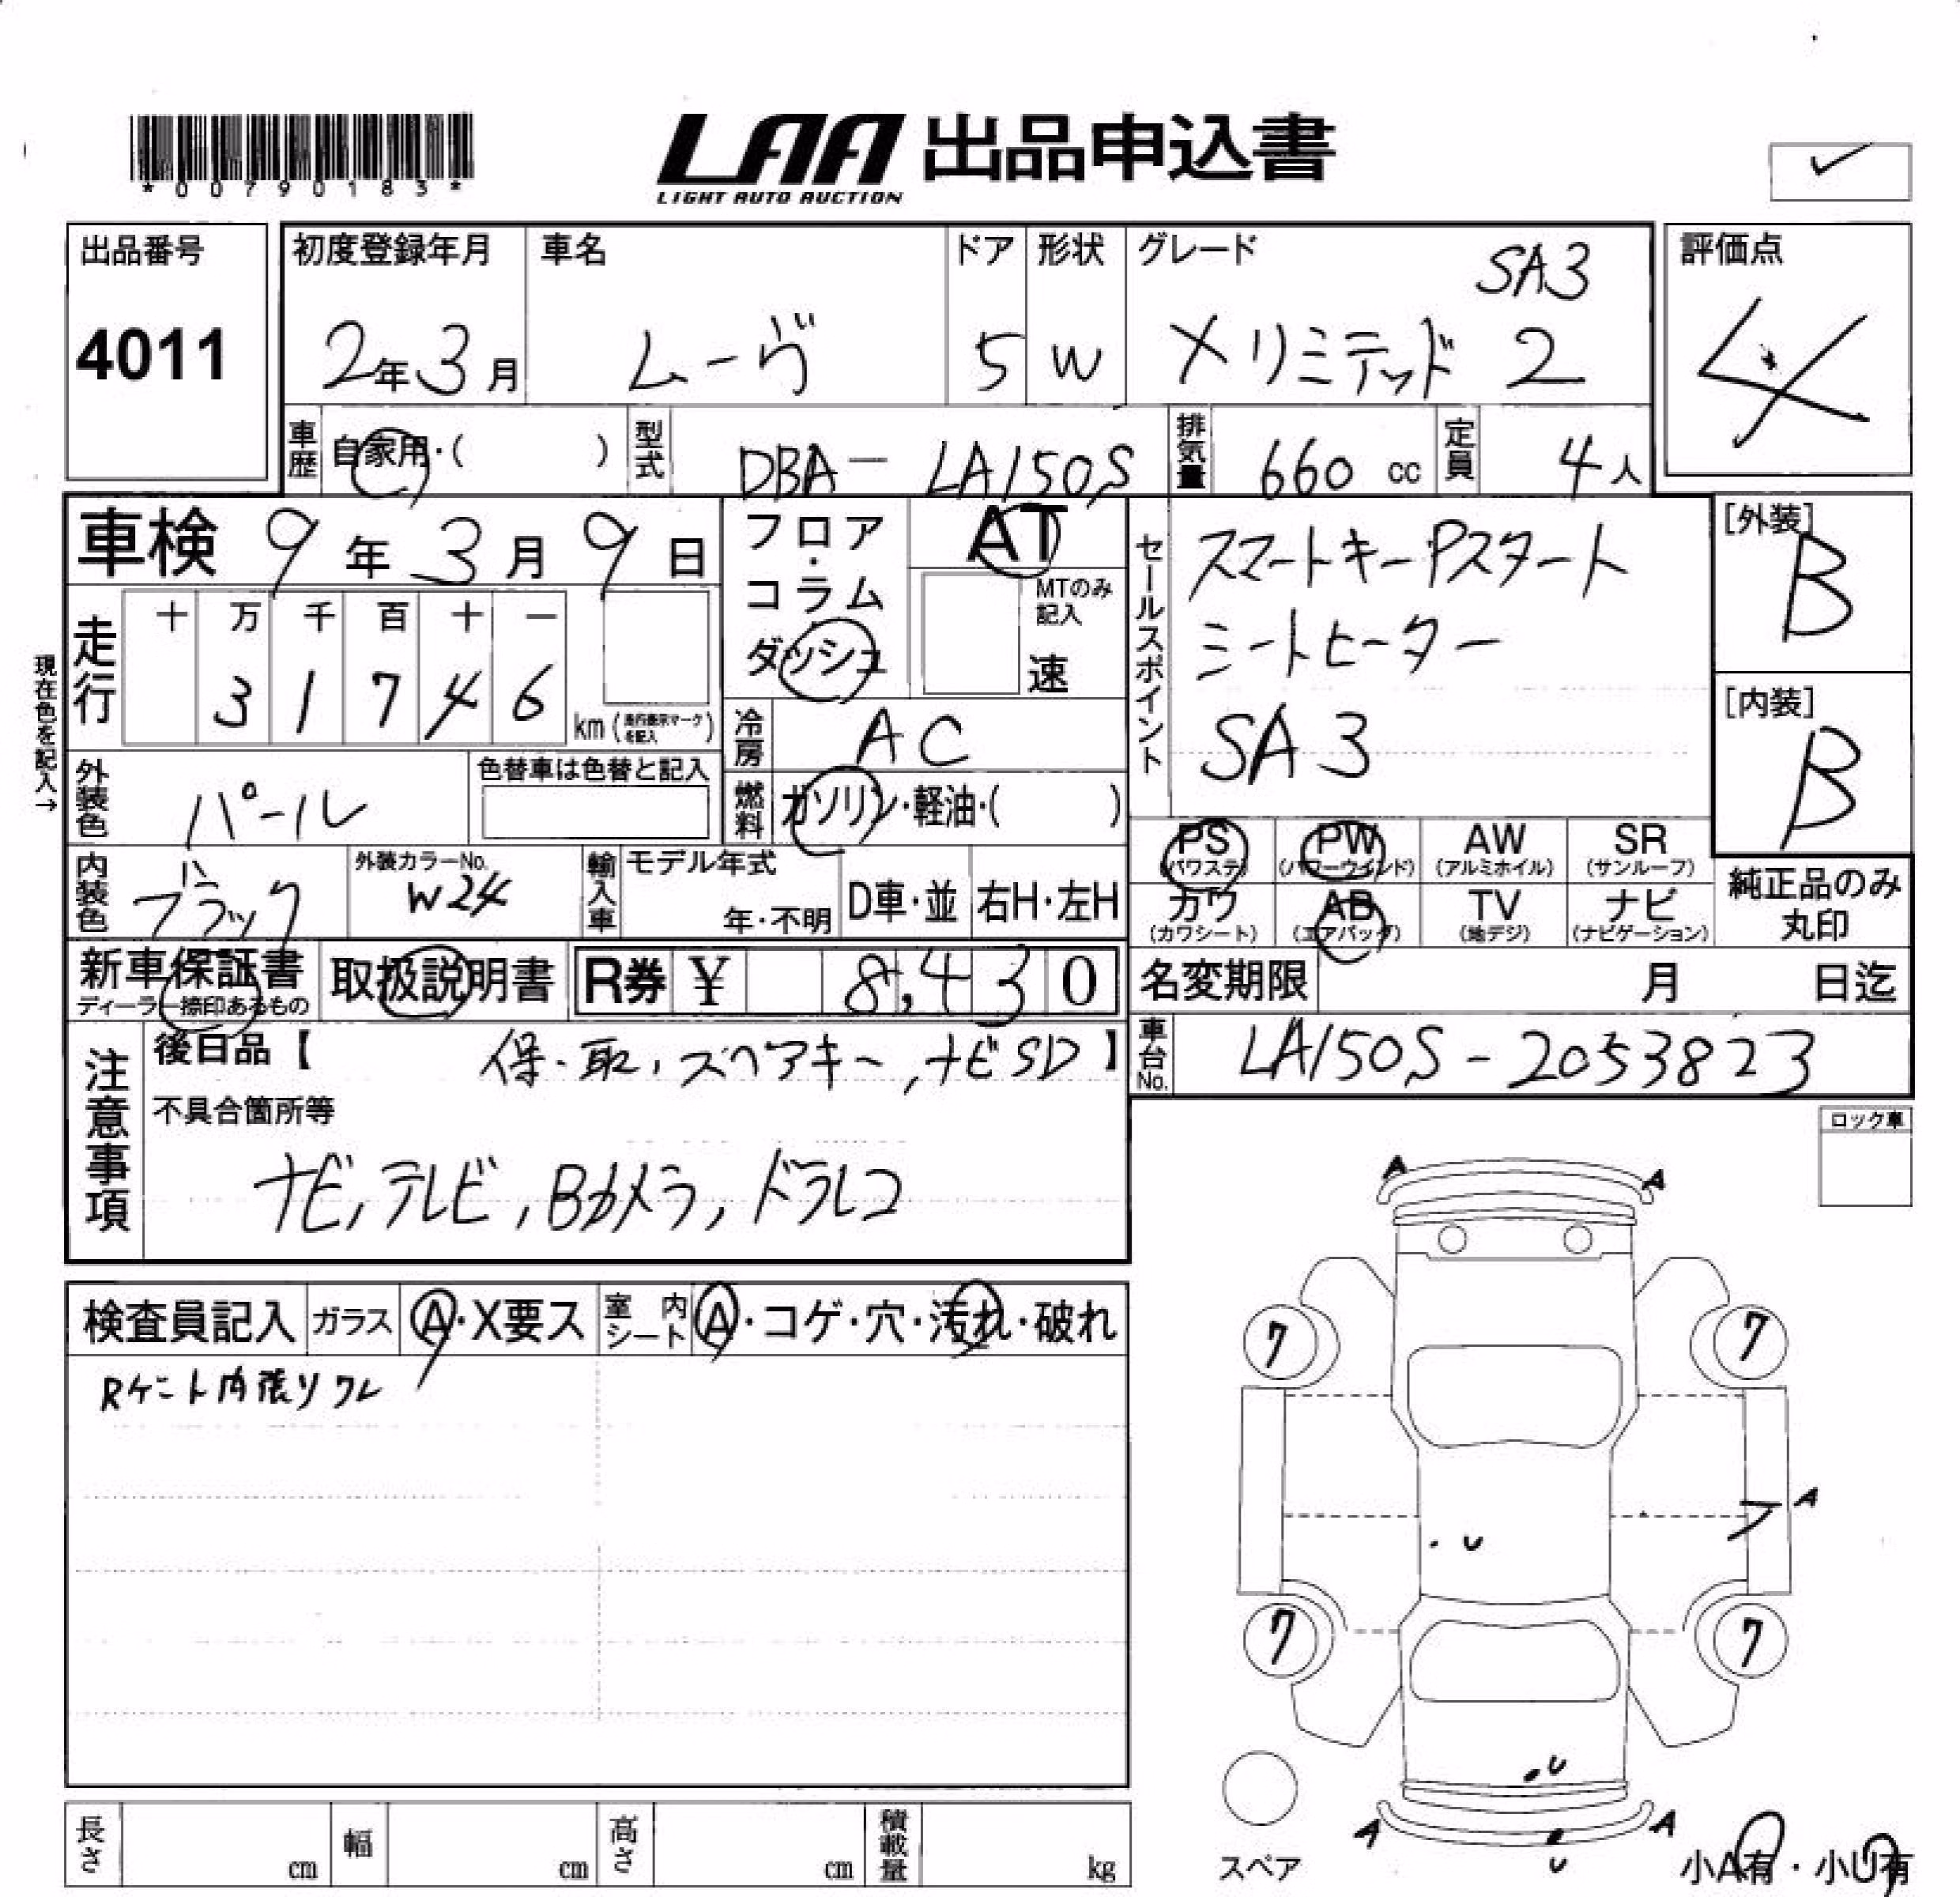 *00790183*
LAA 出品申込書
LIGHT AUTO AUCTION
出品番号
4011
初度登録年月
2年3月
車名
ムーヴ
ドア
5
形状
W
グレード
SA3
Xリミテッド 2
評価点
4
車歴
自家用・( )
型式
DBA - LA150S
排気量
660 cc
定員
4人
車検 9年3月9日
フロア・コラム
ダッシュ
AT
MTのみ記入
速
セールスポイント
スマートキーPスタート
シートヒーター
SA3
[外装]
B
[内装]
B
現在色を記入→
走行
十 万 千 百 十 一
3 1 7 4 6
km (走行表示マークを記入)
冷房
AC
外装色
パール
色替車は色替と記入
燃料
ガソリン・軽油・( )
内装色
ブラック
外装カラーNo.
W24
輸入車
モデル年式
年・不明
D車・並
右H・左H
PS
(パワステ)
PW
(パワーウインド)
AW
(アルミホイル)
SR
(サンルーフ)
カワ
(カワシート)
AB
(エアバッグ)
TV
(地デジ)
ナビ
(ナビゲーション)
純正品のみ
丸印
新車保証書
ディーラー捺印あるもの
取扱説明書
R券 ¥ 8,430
名変期限
月 日迄
車台No.
LA150S-2053823
注意事項
後日品【 保・取, スペアキー, ナビSD 】
不具合箇所等
ナビ, テレビ, Bカメラ, ドラレコ
ロック車
検査員記入
ガラス
A・X要ス
室内シート
A・コゲ・穴・汚れ・破れ
Rゲート内張りワレ
A A
7 7
A
U
7 7
U
A A
U
スペア
小A有・小U有
長さ
cm
幅
cm
高さ
cm
積載量
kg